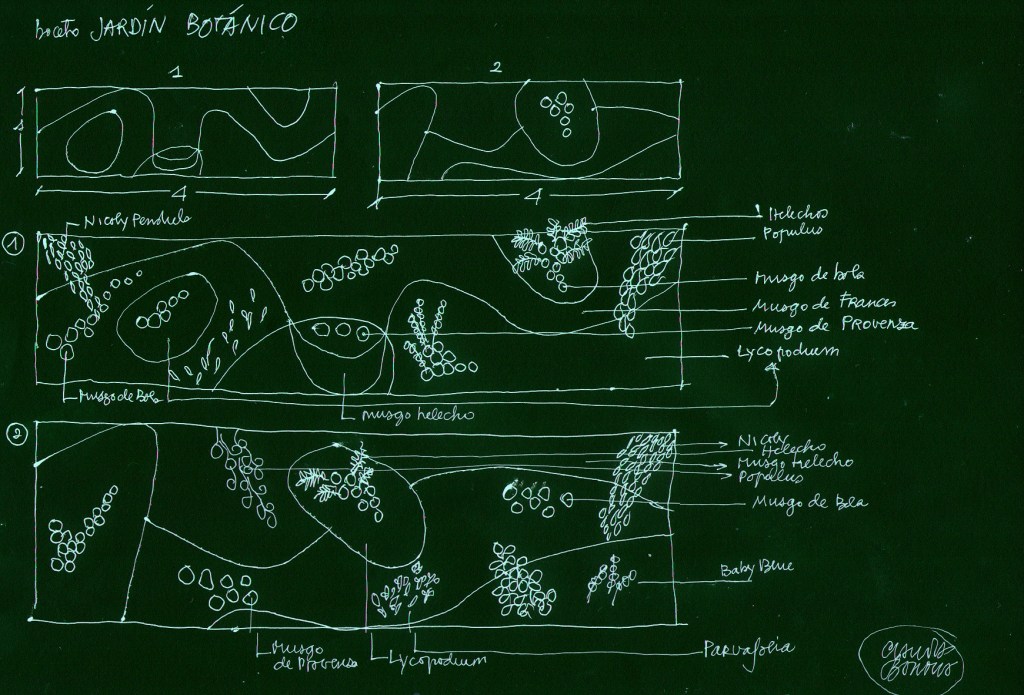 boceto JARDÍN BOTÁNICO
1
2
4
4
Nicoly Pendula
1
Helechos
Populus
Musgo de bola
Musgo de Frances
Musgo de PROVENZA
Lycopodium
Musgo de Bola
musgo helecho
2
Nicoly
Helecho
Musgo Helecho
Populus
Musgo de
Baby Blue
Musgo
de Provenza
Lycopodium
Parvafolia